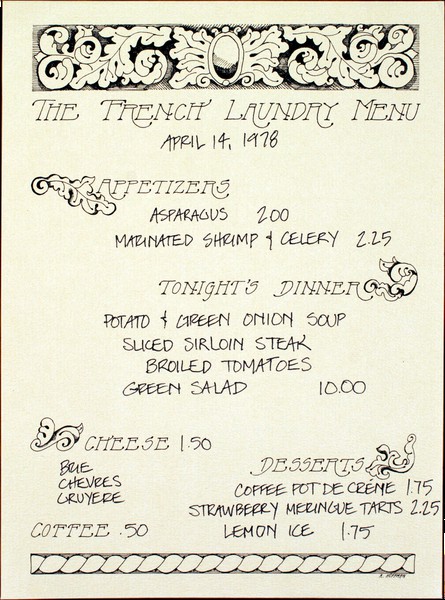 THE FRENCH LAUNDRY MENU
APRIL 14, 1978
APPETIZERS
ASPARAGUS 200
MARINATED SHRIMP & CELERY 2.25
TONIGHT'S DINNER
POTATO & GREEN ONION SOUP
SLICED SIRLOIN STEAK
BROILED TOMATOES
GREEN SALAD 10.00
CHEESE 1.50
BRIE
CHEVRES
GRUYERE
COFFEE .50
DESSERTS
COFFEE POT DE CRÉME 1.75
STRAWBERRY MERINGUE TARTS 2.25
LEMON ICE 1.75